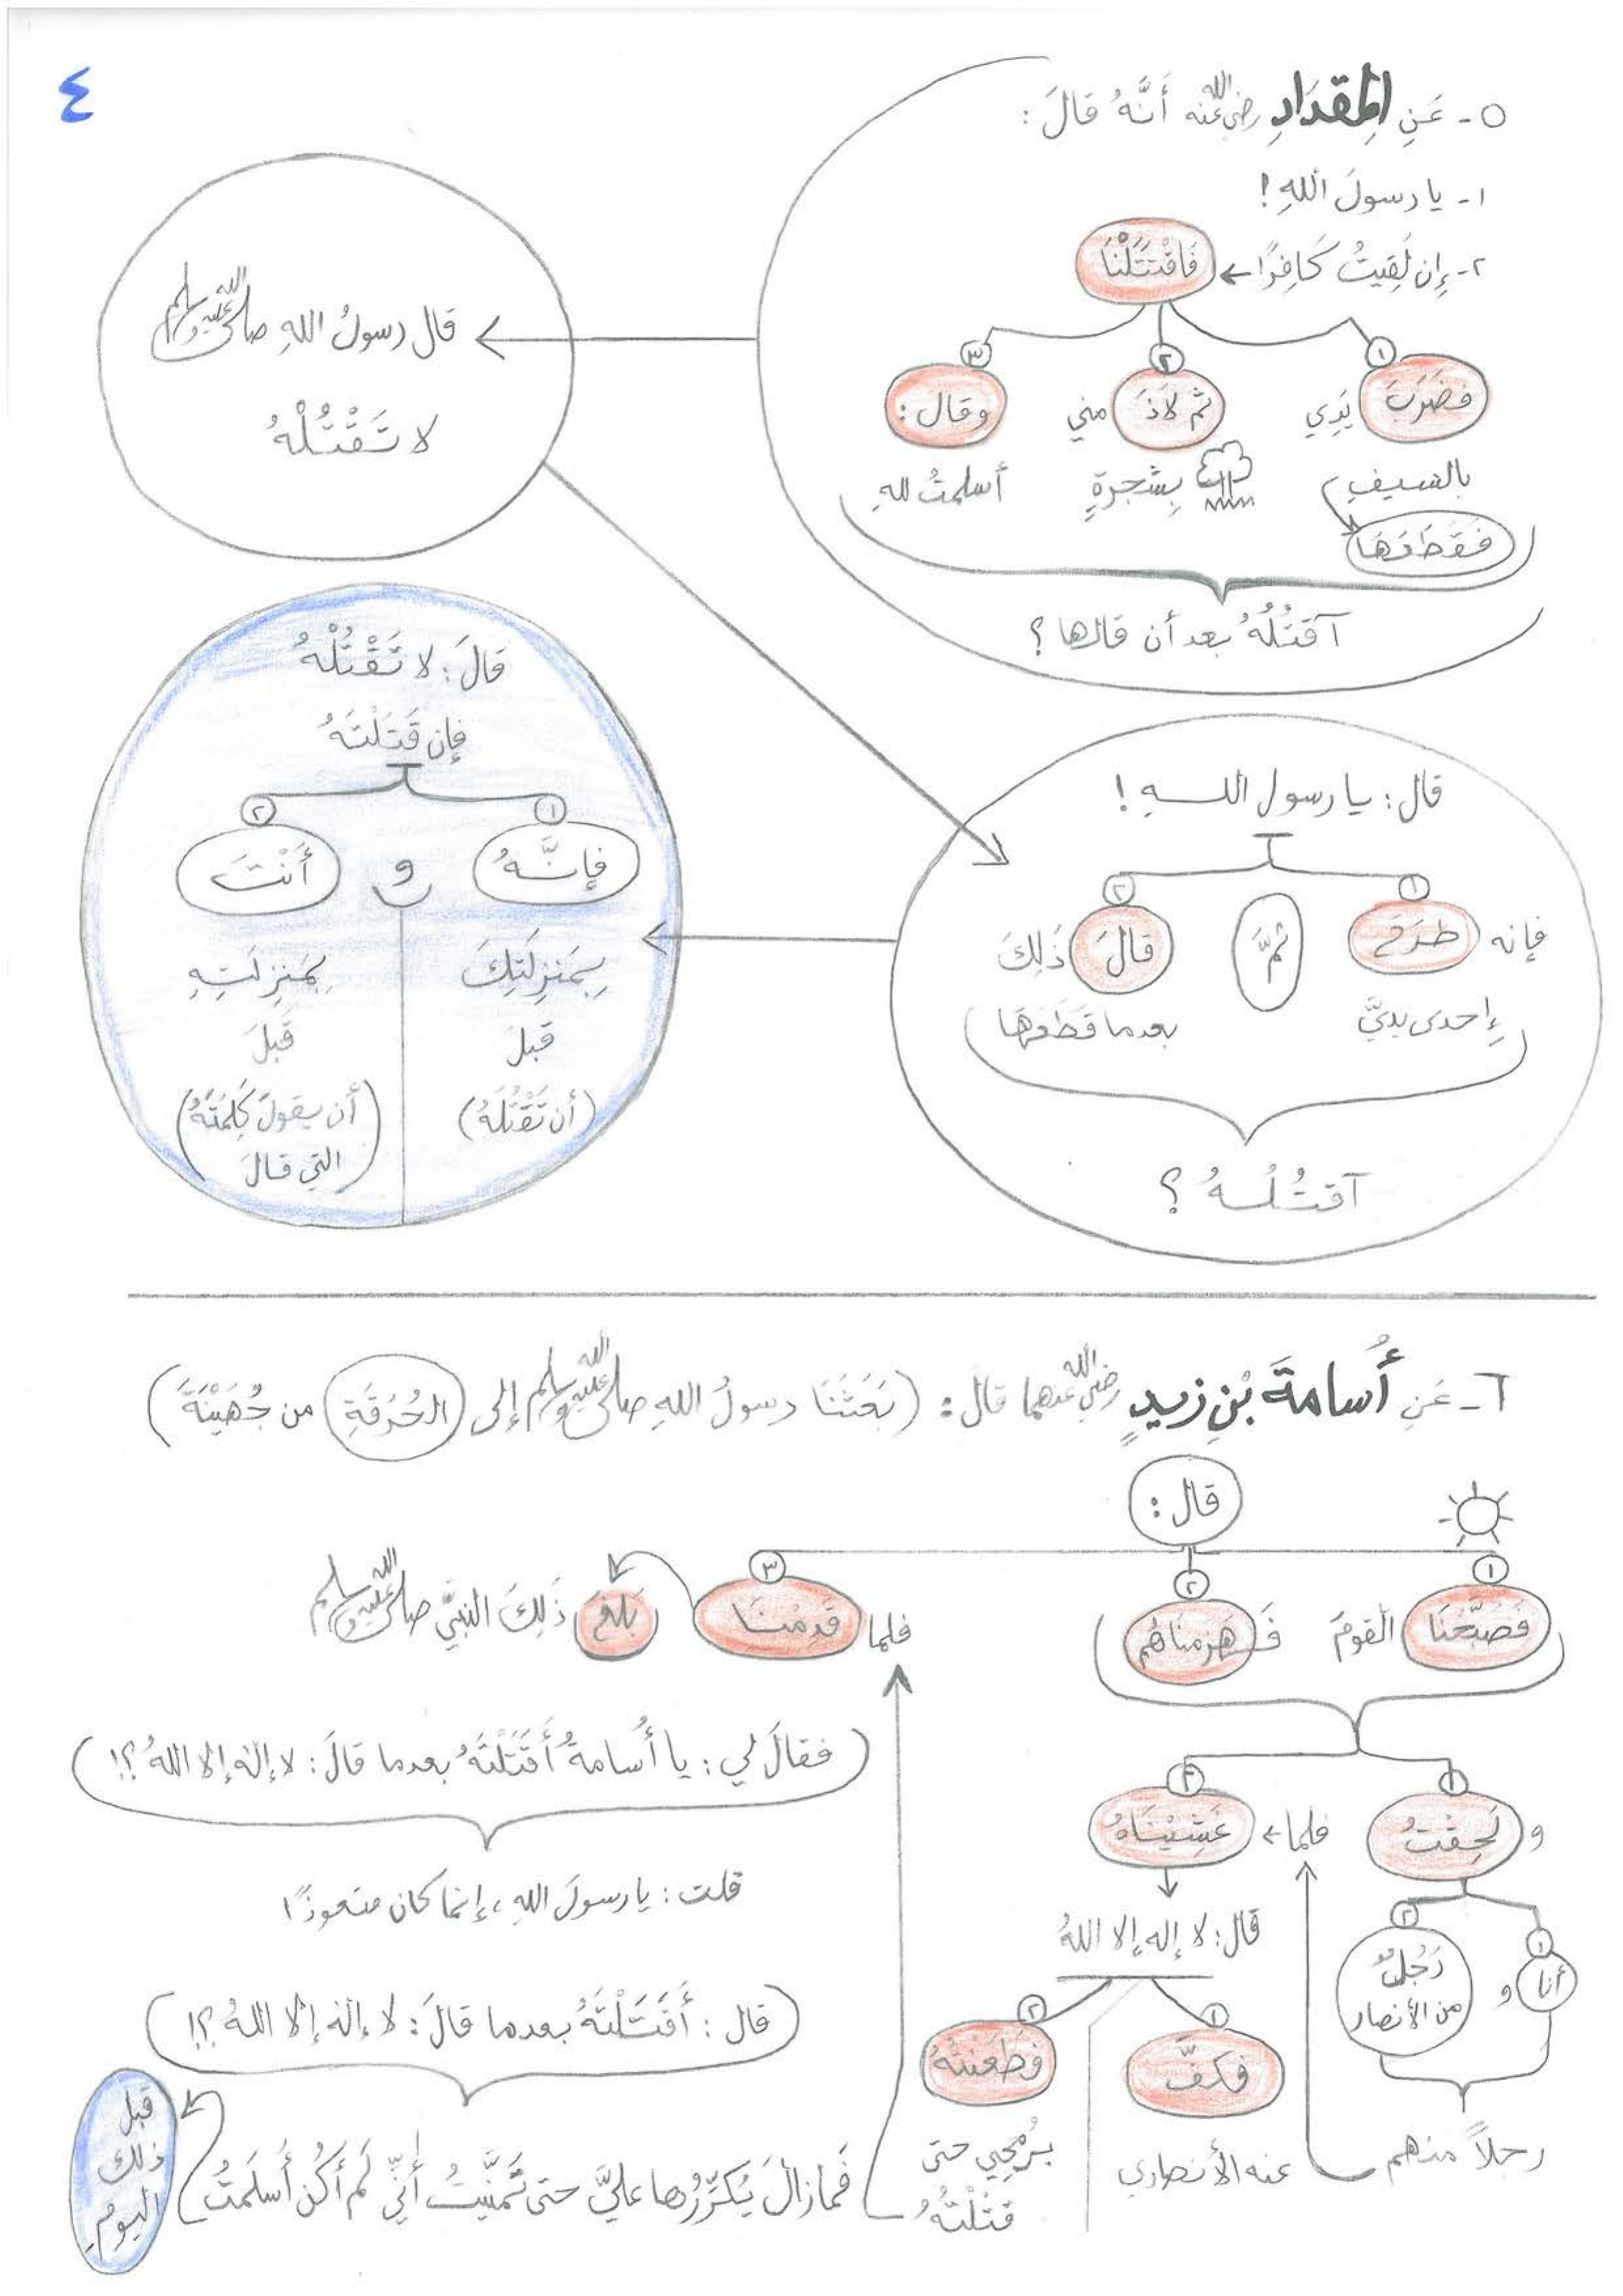 ٤
٥- عَنِ المِقدَادِ رضي الله عنه أَنَّهُ قَالَ:
١- يا رسولَ اللهِ!
٢- إِن لَقِيتُ كَافِرًا ← فَاقْتَتَلْنَا
١ فضَرَبَ يَدِي
بالسيفِ
فَقَطَعَهَا
٢ ثم لاذَ مني
بِشجرةٍ
٣ وقال:
أسلمتُ للهِ
آقتُلُهُ بعد أن قالها؟
قال رسولُ اللهِ صلى الله عليه وسلم
لا تَقْتُلْهُ
قال: يا رسول اللهِ!
١ فإنه طَرَحَ
إحدى يديَّ
ثمَّ
٢ قالَ ذَلِكَ
بعدما قَطَعَهَا
آقتُلُهُ؟
قالَ: لا تَقْتُلْهُ
فإن قَتَلْتَهُ
١ فإنَّهُ
بِمَنزِلَتِكَ
قبلَ
(أن تَقْتُلَهُ)
و
٢ أَنْتَ
بِمَنزِلَتِهِ
قَبلَ
(أن يقولَ كَلِمَتَهُ
التي قالَ)
٦- عَنِ أُسامةَ بْنِ زيدٍ رضي الله عنهما قال: (بَعَثَنَا رسولُ اللهِ صلى الله عليه وسلم إلى الحُرَقَةِ من جُهَيْنَةَ)
قال:
١ فَصَبَّحْنَا القومَ
٢ فَهزمناهم
٣ فلما قَدِمْنَا بلغ ذَلِكَ النبيَّ صلى الله عليه وسلم
١ و لَحِقْتُ
١ أنا و
٢ رَجُلٌ
من الأنصار
رجلاً منهم
٢ فلما ← غَشِيْنَاهُ
قال: لا إله إلا اللهُ
١ فكفَّ
عنه الأنصاري
٢ فطَعَنتهُ
بِرُمْحِي حتى
قتَلْتُهُ
(فقالَ لي: يا أُسامةُ أَقَتَلْتَهُ بعدما قالَ: لا إلهَ إلا اللهُ؟!)
قلت: يا رسولَ اللهِ، إنما كان متعوذًا
(قال: أَقَتَلْتَهُ بعدما قالَ: لا إلهَ إلا اللهُ؟!)
فما زالَ يُكَرِّرُها عليَّ حتى تَمَنَّيتُ أَنِّي لَم أَكُن أَسلَمتُ
قبل
ذلك
اليومِ